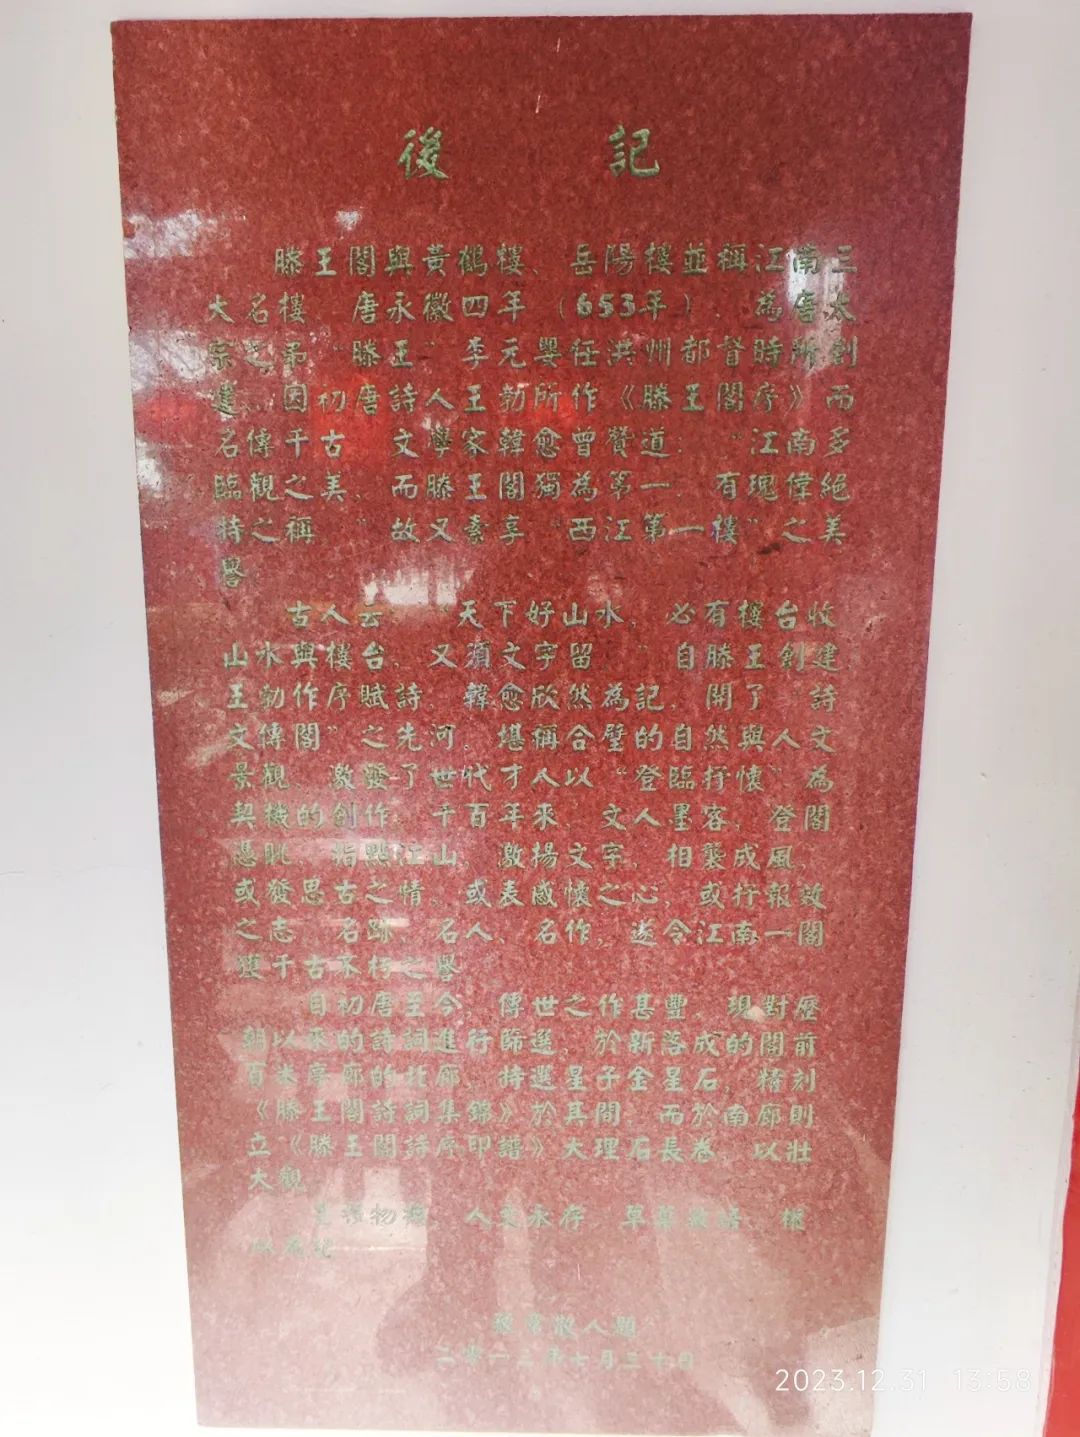 後記
滕王閣與黃鶴樓、岳陽樓並稱江南三
大名樓 唐永徽四年（653年），為唐太
宗之弟“滕王”李元嬰任洪州都督時所創
建，因初唐詩人王勃所作《滕王閣序》而
名傳千古 文學家韓愈曾贊道：“江南多
臨觀之美，而滕王閣獨為第一，有瑰偉絕
特之稱 ”故又素享“西江第一樓”之美
譽
古人云 “天下好山水，必有樓台收
山水與樓台，又須文字留 ”自滕王創建，
王勃作序賦詩，韓愈欣然為記，開了“詩
文傳閣”之先河，堪稱合璧的自然與人文
景觀，激發了世代才人以“登臨抒懷”為
契機的創作，千百年來，文人墨客，登閣
憑眺，指點江山，激揚文字，相襲成風，
或發思古之情，或表感懷之心，或抒報效
之志，名跡，名人，名作，遂令江南一閣
獲千古不朽之譽
自初唐至今，傳世之作甚豐，現對歷
朝以來的詩詞進行篩選，於新落成的閣前
百米序廊的北廊，特選星子金星石，精刻
《滕王閣詩詞集錦》於其間，而於南廊則
立《滕王閣詩序印譜》大理石長卷，以壯
大觀
物 人文永存，草 
以為記
散人題
二零一三年七月三十日
2023.12.31 13:58